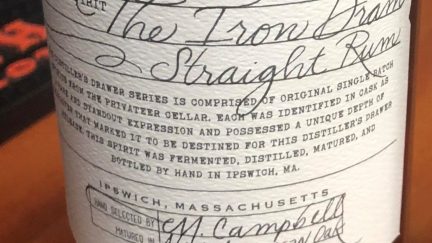 SPIRIT
The Iron Dram
Straight Rum
DISTILLER'S DRAWER SERIES IS COMPRISED OF ORIGINAL SINGLE BATCH
FROM THE PRIVATEER CELLAR. EACH WAS IDENTIFIED IN CASK AS
AND STANDOUT EXPRESSION AND POSSESSED A UNIQUE DEPTH OF
THAT MARKED IT TO BE DESTINED FOR THIS DISTILLER'S DRAWER
RELEASE. THIS SPIRIT WAS FERMENTED, DISTILLED, MATURED, AND
BOTTLED BY HAND IN IPSWICH, MA.
IPSWICH, MASSACHUSETTS
HAND SELECTED BY
Campbell
MATURED IN
Oak